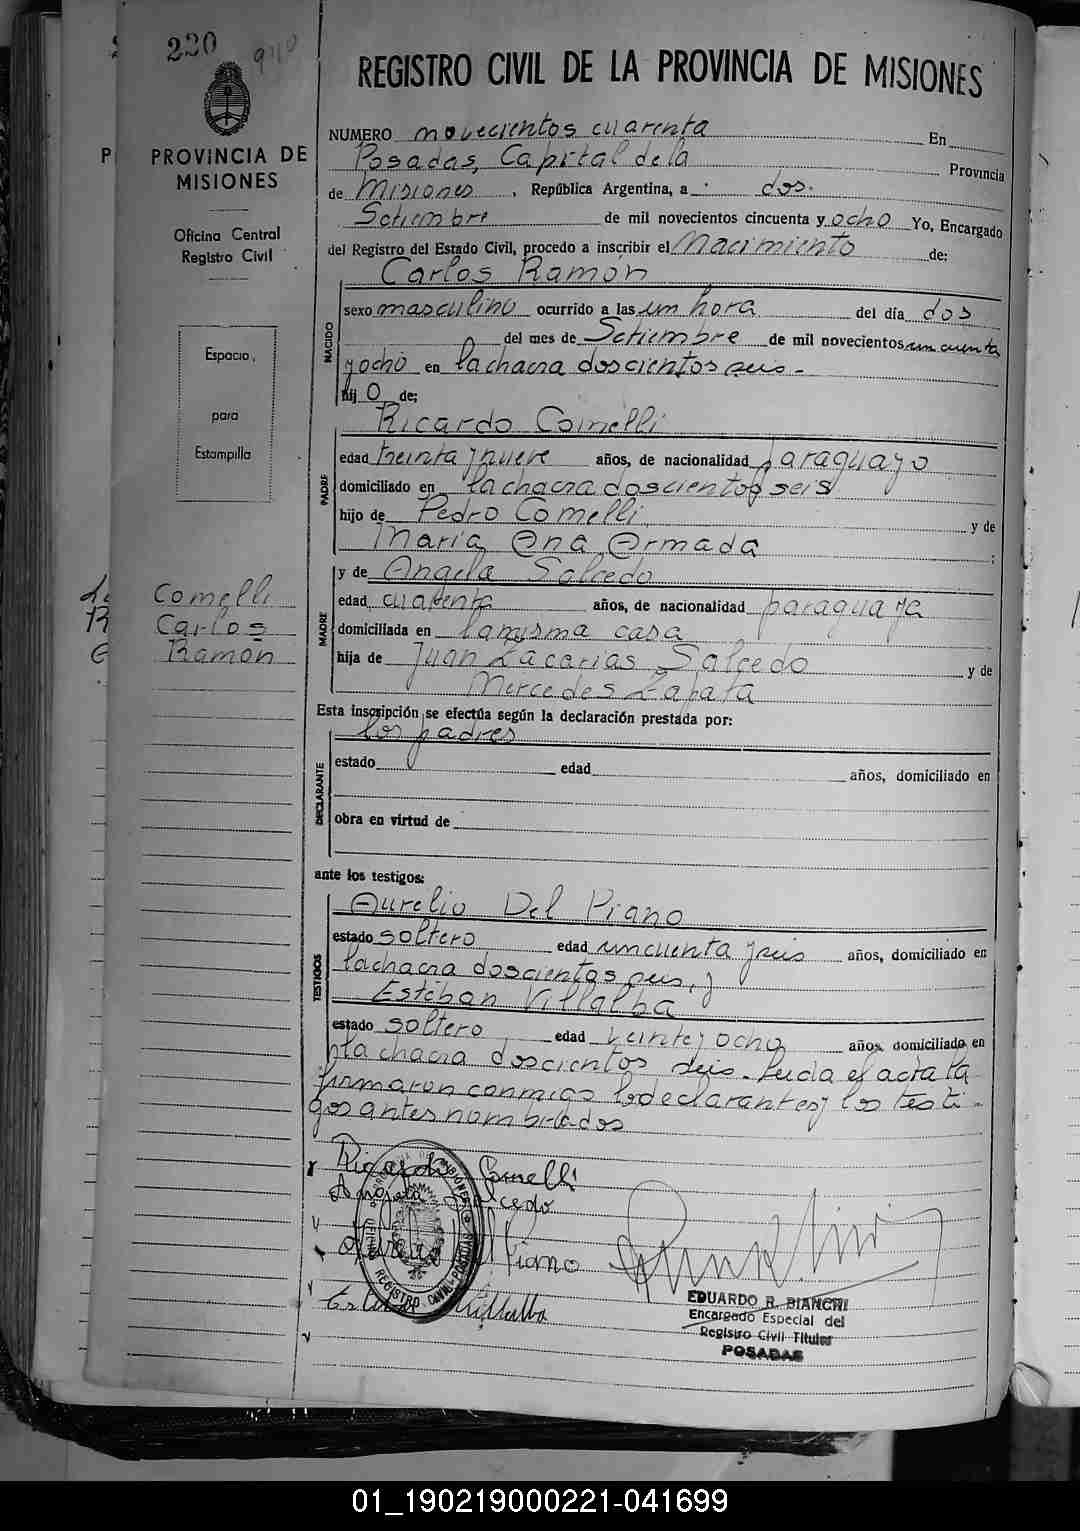 220
940
REGISTRO CIVIL DE LA PROVINCIA DE MISIONES
PROVINCIA DE
MISIONES
Oficina Central
Registro Civil
Espacio
para
Estampilla
Comelli
Carlos
Ramón
NUMERO novecientos cuarenta En
Posadas, Capital de la Provincia
de Misiones, República Argentina, a dos.
Setiembre de mil novecientos cincuenta y ocho Yo, Encargado
del Registro del Estado Civil, procedo a inscribir el Nacimiento de:
NACIDO
Carlos Ramón
sexo masculino ocurrido a las un hora del día dos
del mes de Setiembre de mil novecientos cincuenta
y ocho en la chacra doscientos seis.-
hijo de;
PADRE
Ricardo Comelli
edad treinta y nueve años, de nacionalidad paraguayo
domiciliado en la chacra doscientos seis
hijo de Pedro Comelli y de
Maria Ana Armada ;
MADRE
y de Angela Salcedo
edad cuarenta años, de nacionalidad paraguaya
domiciliada en la misma casa
hija de Juan Zacarias Salcedo y de
Mercedes Zapata
Esta inscripción se efectúa según la declaración prestada por:
los padres
DECLARANTE
estado edad años, domiciliado en
obra en virtud de
ante los testigos:
TESTIGOS
Aurelio Del Piano
estado soltero edad cincuenta y seis años, domiciliado en
la chacra doscientos seis, y
Esteban Villalba
estado soltero edad veinte y ocho años, domiciliado en
la chacra doscientos seis.- Leida el acta la
firmaron conmigo los declarantes y los testi-
gos antes nombrados
Ricardo Comelli
Angela Salcedo
Aurelio Del Piano
Esteban Villalba
OFICINA REGISTRO CIVIL - POSADAS
MISIONES
EDUARDO R. BIANCHI
Encargado Especial del
Registro Civil Titular
POSADAS
01_190219000221-041699